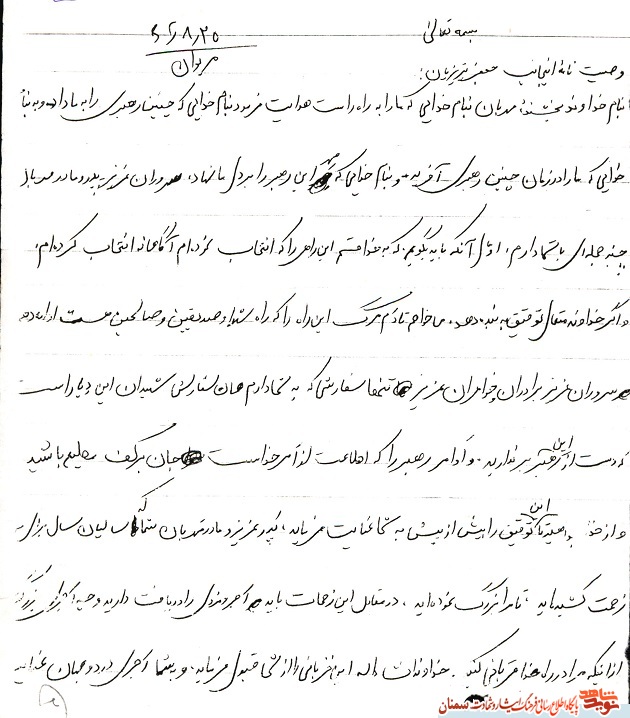 بسمه تعالی
۶۵/۸/۲۰
مریوان
وصیت نامه اینجانب
بنام خداوند بخشنده مهربان بنام خدایی که ما را به راه راست هدایت فرمود بنام خدایی که چنین رهبری را به ما داد و به نام
خدایی که ما را در زمان چنین رهبری آفرید و بنام خدایی که مهر این رهبر را بر دل ما نهاد، سروران عزیز پدر و مادر
چند جمله‌ای با شما دارم، اول آنکه باید بگویم که به خدا قسم این راهی را که انتخاب نموده‌ام آگاهانه انتخاب کرده‌ام،
و اگر خداوند متعال توفیق بدهد، می‌خواهم تا دم مرگ این راه را که راه شهدا و صدیقین و صالحین است ادامه دهم
سروران عزیز برادران و خواهران عزیز تنها سفارشی که به شما دارم همان سفارش شهیدان این دیار است
که دست از این رهبر برندارید و اوامر رهبر را که اطاعت از امر خداست جان بر کف مطیع باشید
و از خدا بخواهید تا این توفیق را بیش از پیش به شما عنایت فرماید، پدر عزیز و مادر مهربان شما که سالیان سال برای
زحمت کشیده‌اید تا مرا بزرگ نموده‌اید، در مقابل این زحمات باید اجر و مزدی را دریافت دارید و چه اجری بزرگتر
از اینکه مرا در راه خدا قربانی کنید. خداوند انشاءالله این قربانی را از شما قبول فرماید و به شما اجری در دو جهان عنایت
نوید شاهد
پایگاه اطلاع رسانی فرهنگ ایثار و شهادت سمنان